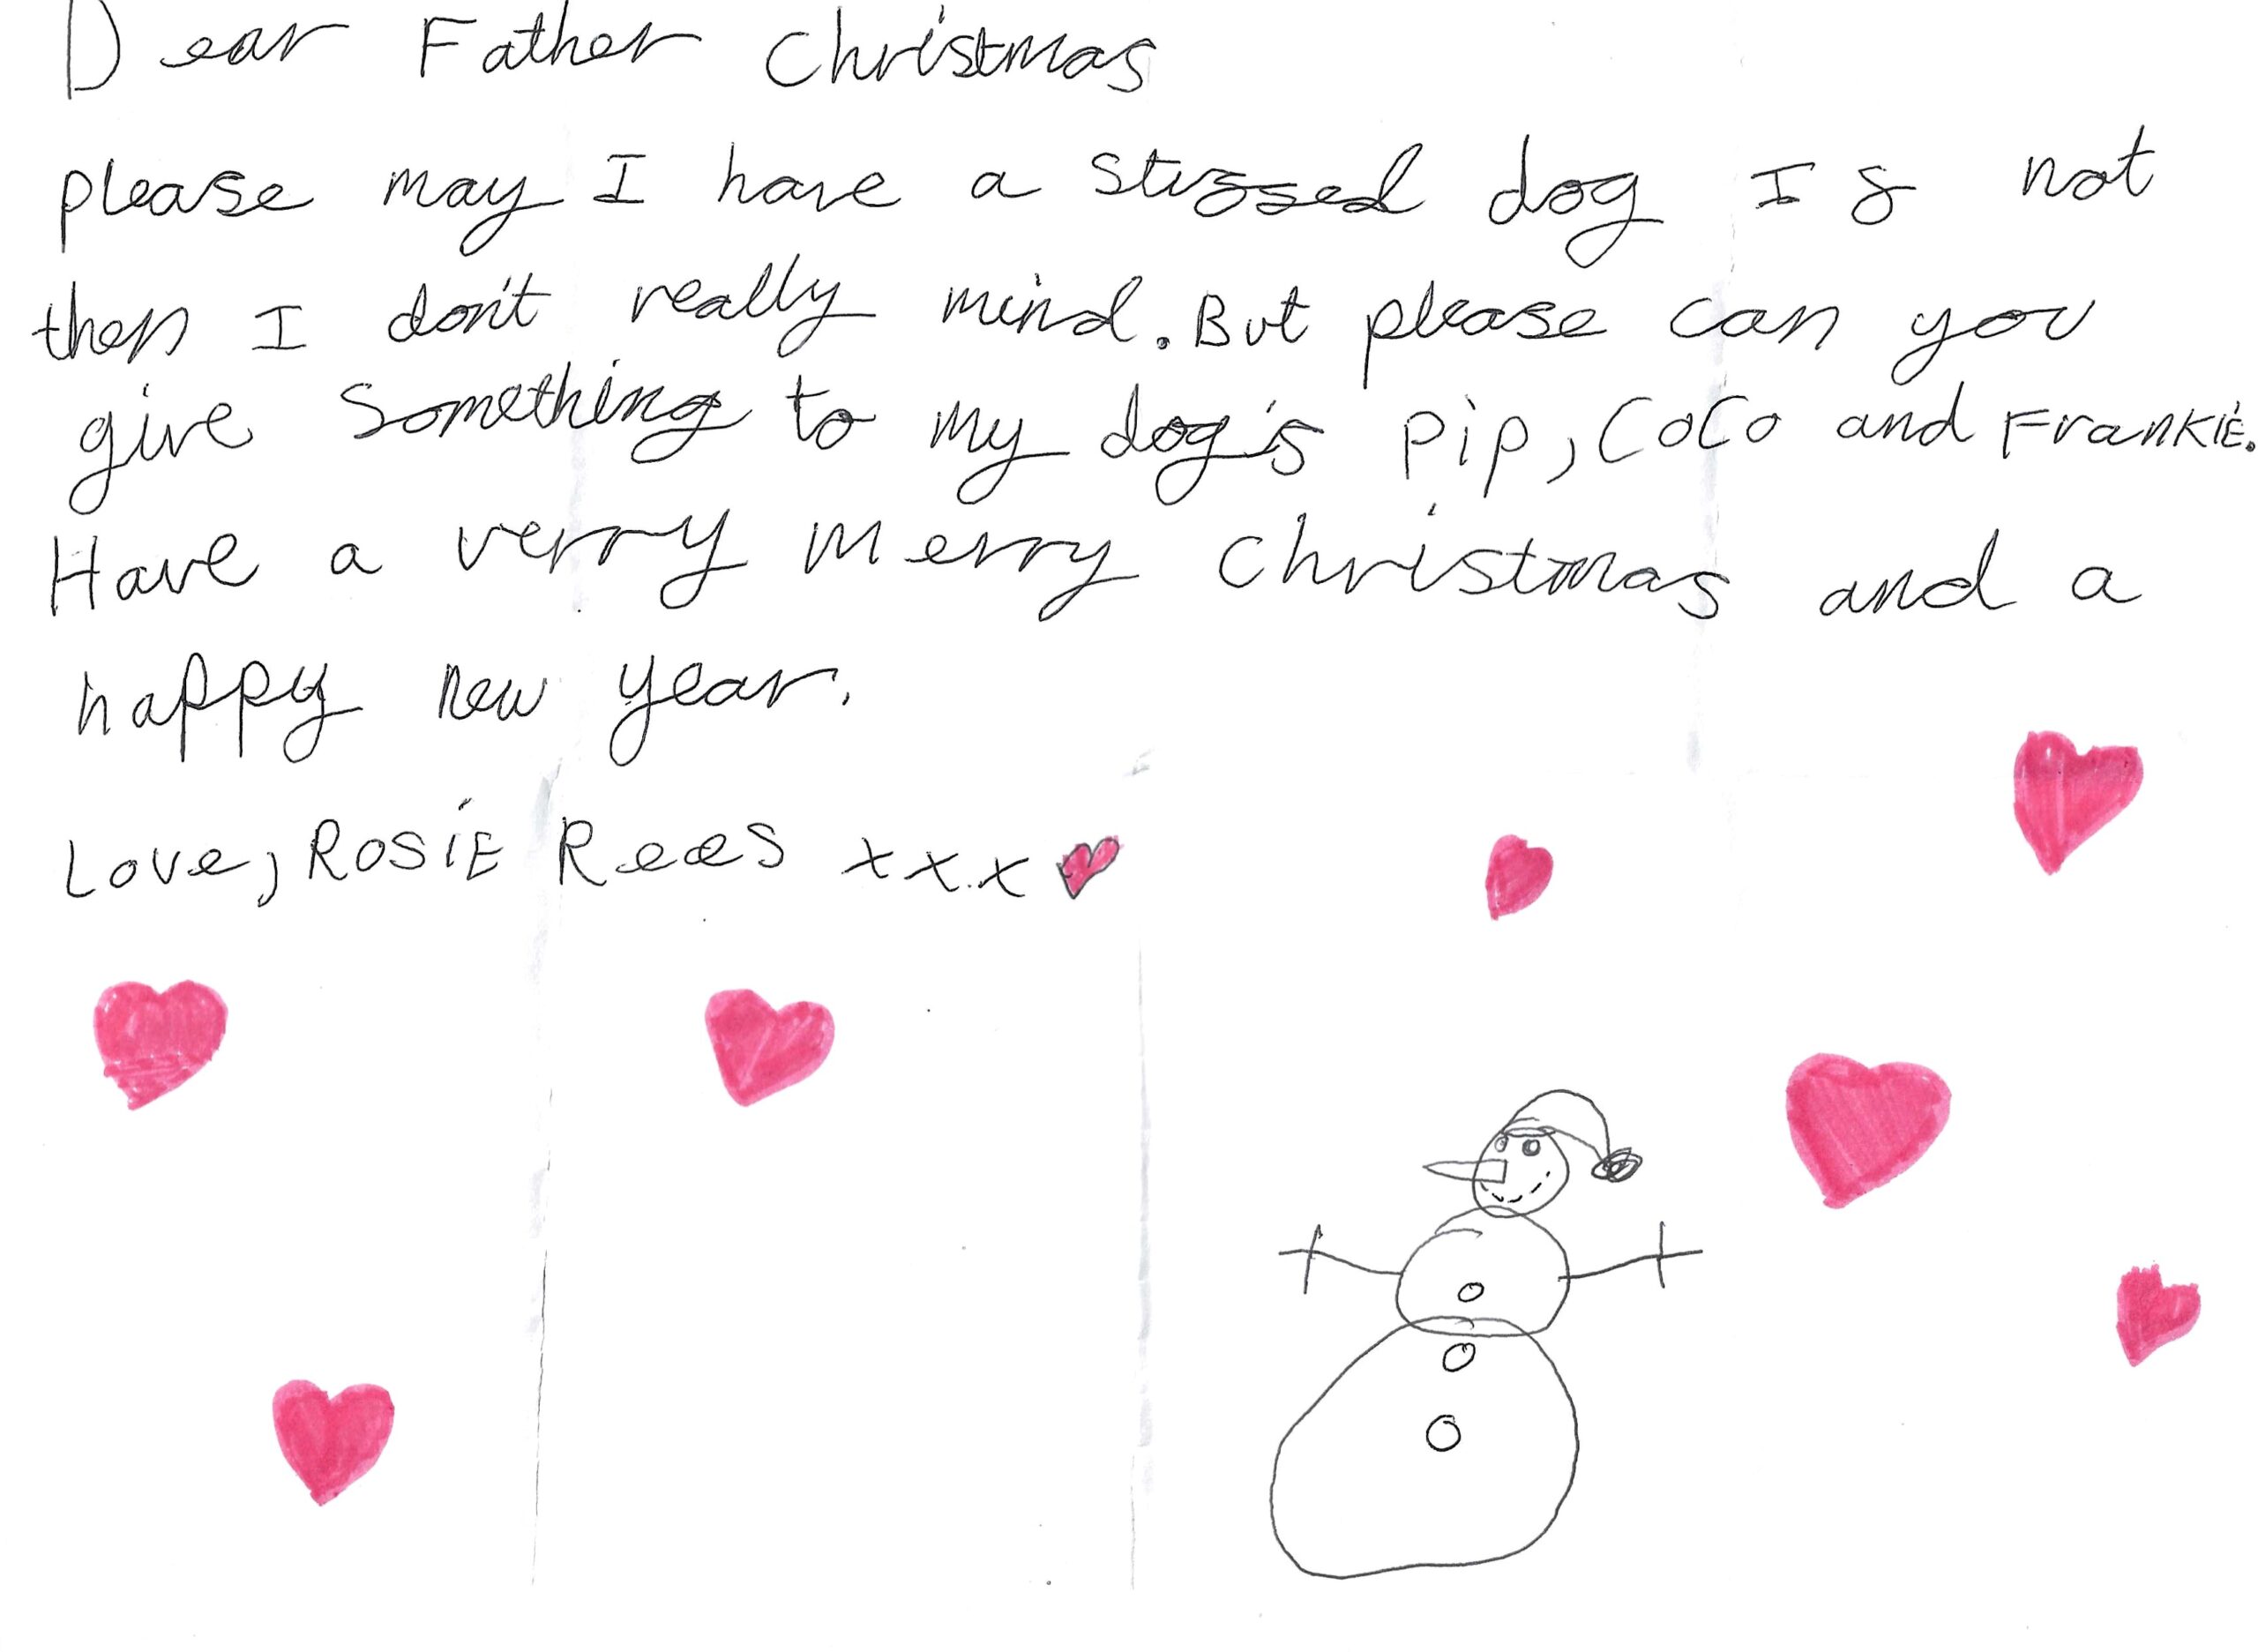 Dear Father Christmas
please may I have a stuffed dog If not
then I don't really mind. But please can you
give something to my dog's Pip, CoCo and FranKiE.
Have a verry merry Christmas and a
happy new year.
Love, ROSiE Rees xxx